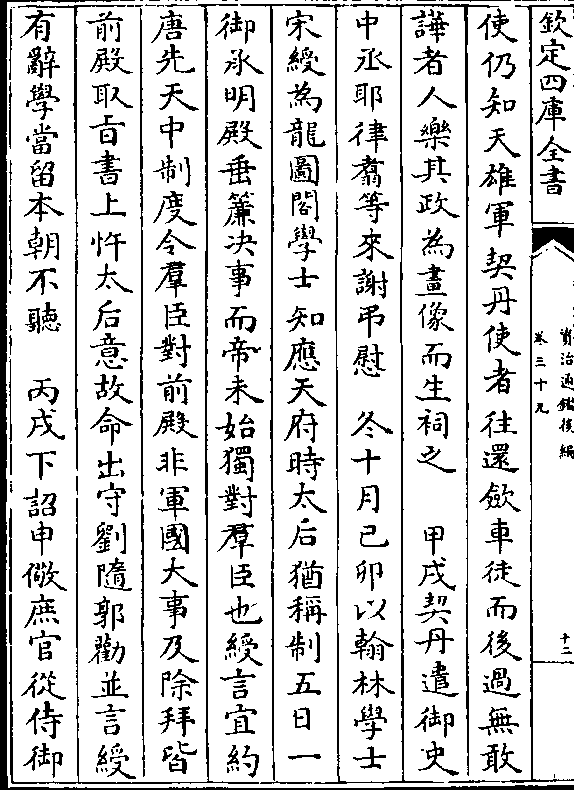 欽定四庫全書
資治通鑑後編
卷三十九
十二
使仍知天雄軍契丹使者往還斂車徒而後過無敢
譁者人樂其政為畫像而生祠之　甲戌契丹遣御史
中丞耶律翥等來謝弔慰　冬十月己卯以翰林學士
宋綬為龍圖閣學士知應天府時太后猶稱制五日一
御承明殿垂簾決事而帝未始獨對羣臣也綬言宜約
唐先天中制度令羣臣對前殿非軍國大事及除拜皆
前殿取旨書上忤太后意故命出守劉隨郭勸並言綬
有辭學當留本朝不聽　丙戌下詔申儆庶官從侍御